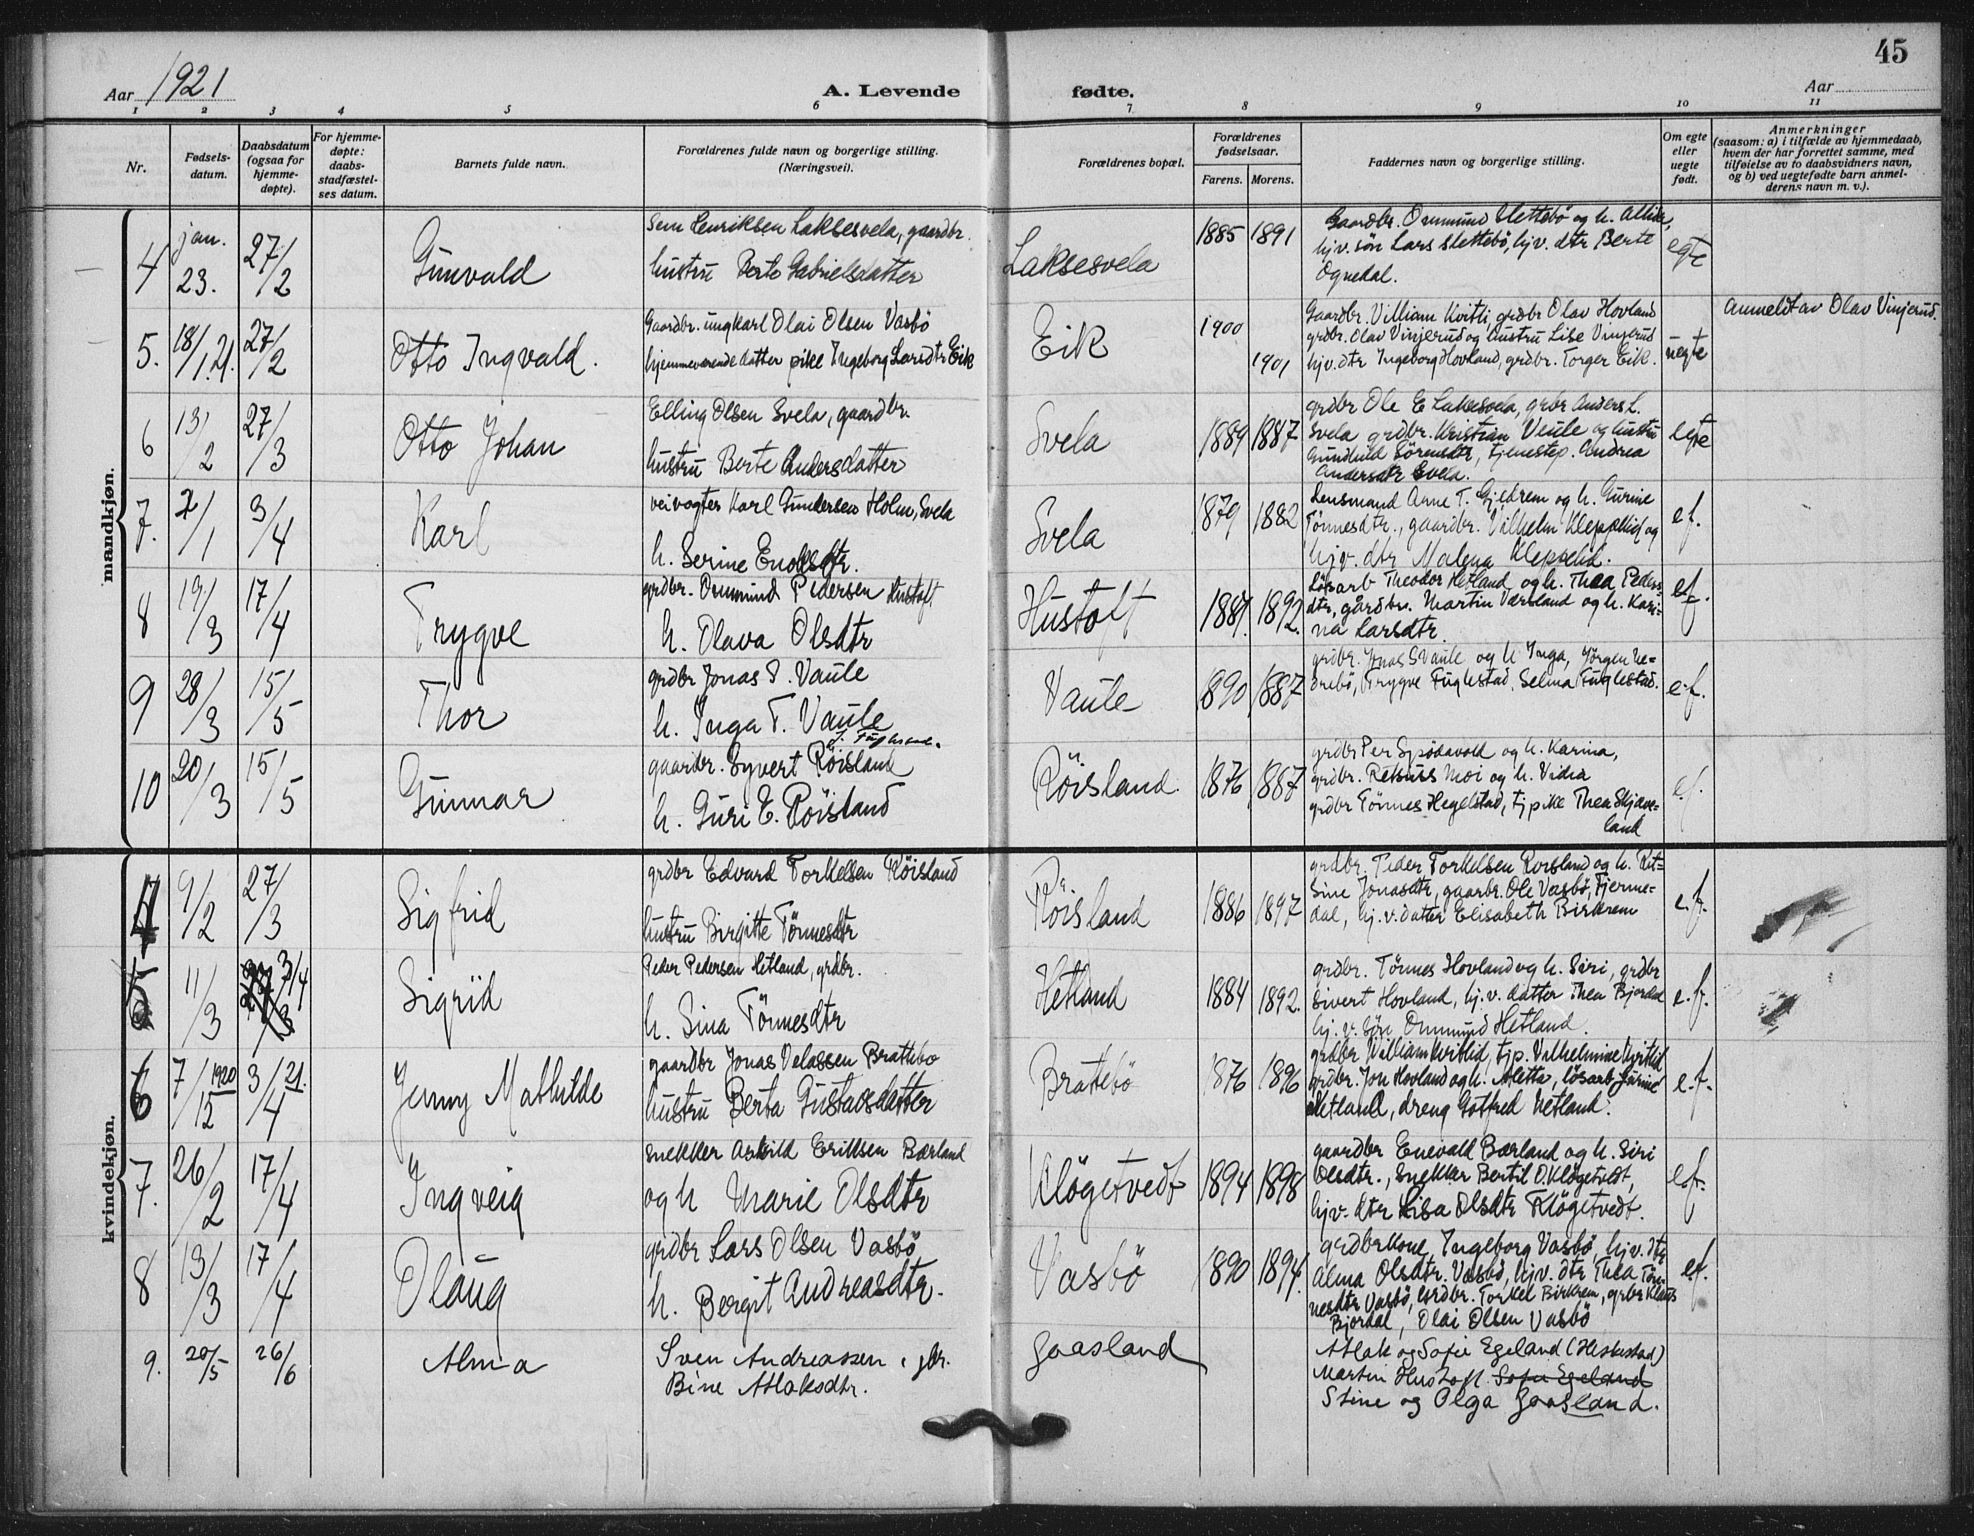 45
Aar 1921
A. Levende fødte.
Aar
1 2 3 4 5 6 7 8 9 10 11
Nr.
Fødsels-
datum.
Daabsdatum
(ogsaa for
hjemme-
døpte).
For hjemme-
døpte:
daabs-
stadfæstel-
ses datum.
Barnets fulde navn.
Forældrenes fulde navn og borgerlige stilling.
(Næringsvei).
Forældrenes bopæl.
Forældrenes
fødselsaar.
Farens. Morens.
Faddernes navn og borgerlige stilling.
Om egte
eller
uegte
født.
Anmerkninger
(saasom: a) i tilfælde av hjemmedaab,
hvem der har forrettet samme, med
tilføielse av to daabsvidners navn,
og b) ved uegtefødte barn anmel-
derens navn m. v.).
mandkjøn.
4 jan. 23. 27/2 Gunvald
Sem Henriksen Laksesvela, gaardbr.
hustru Berte Gabrielsdatter
Laksesvela 1885 1891
Gaardbr. Ommund Slettebö og h.
hjv. søn Lars Slettebö, hjv. dtr Berte
Ognedal.
egte
5. 18/1.21. 27/2 Otto Ingvald.
Gaardbr. ungkarl Olai Olsen Vasbö
hjemmeværende datter pike Ingeborg Larsdtr Eik
Eik 1900 1901
Gaardbr. Villiam Kvitli grdbr Olav Hovland
grdbr. Olav Vinjerud og hustru Lise Vinjerud
hjv. dtr Ingeborg Hovland, grdbr. Torger Eik.
uegte
Anmeldt av Olav Vinjerud.
6 13/2 27/3 Otto Johan
Elling Olsen Svela, gaardbr.
hustru Berte Andersdatter
Svela 1889 1887
grdbr Ole E Laksesvela, grbr Anders L.
Svela grdbr. Kristian Veule og hustru
Gunhild Sörensdtr, tjenestep. Andrea
Andersdtr Svela.
egte
7. 2/1 3/4 Karl
veivogter Karl Gundersen Holm, Svela
h. Serine Enoksdtr.
Svela 1879 1882
Lensmand Arne T. Gjedrem og h. Gurine
Tönnesdtr., gaardbr. Vilhelm Kleppelid og
hjv. dtr Malena Kleppelid.
e.f.
8 19/3 17/4 Trygve
grdbr. Ommund Pedersen Hustoft
h. Olava Olsdtr
Hustoft 1892.
Lösarb Theodor Hetland og h. Thea Peders-
dtr, gårdbr. Martin Værsland og h. Kari-
na Larsdtr
e.f.
9 28/3 15/5 Thor
grdbr Jonas S. Vaule
h. Inga T. Vaule
Vaule 1890 1887
grdbr. Jonas S Vaule og h Inga, Jörgen Ne-
drebö, Trygve Fuglestad, Selma Fuglestad.
e.f.
10 20/3 15/5 Gunnar
gaardbr. Syvert Röisland
h. Guri E. Röisland
Röisland. 1876 1887
grdbr Per Spödevold og h. Karina,
grdbr. Rasmus Moi og h. Vidia
grdbr Tönnes Hegelstad, tj pike Thea Skjæve-
land
e.f.
kvindekjøn.
4 9/2 27/3 Sigfrid
grdbr Edvard Torkelsen Röisland
hustru Birgitte Tönnesdtr
Röisland 1886 1897
grdbr. Peder Torkelsen Roisland og h. Ret-
sine Jonasdtr, gaarbr. Ole Vasbö, Tjerme-
dal, hj. v. datter Elisabeth Birkrem
e.f.
5 11/3 3/4 Sigrid
Peder Pedersen Hetland, grdbr.
h. Sina Tönnesdtr
Hetland 1884 1892.
grdbr. Tönnes Hovland og h. Siri, grdbr
Sivert Hovland, hj. v. datter Thea Bjordal
hj. v. sön Ommund Hetland.
e.f.
6 7/12 1920 3/4 21. Jenny Mathilde
gaardbr Jonas Velassen Brattebo
hustru Berta Gustavsdatter
Brattebö 1876 1896
grdbr William Kvitlid, tjp. Vilhelmine Kvitlid
grdbr. Jon Hovland og h. Aletta, lösarb Gurine
Hetland, dreng Gotfred Hetland.
e.f.
7. 26/2 17/4 Ingveig
snekker Askild Eriksen Bærland
og h Marie Olsdtr
Klögetvedt 1894 1898
gaardbr Enevald Bærland og h. Siri
Olsdtr., snekker Bertil O. Klögetvedt,
hjv. dtr Lisa Olsdtr Klögetvedt.
e.f.
8 13/3 17/4 Olaug
grdbr Lars Olsen Vasbö
h. Bergit Andreasdtr.
Vasbö 1890 1894
grdbrkone, Ingeborg Vasbö, hjv. dtr
Alma Olsdtr. Vasbö, hjv. dtr Thea Tön-
nesdtr Vasbö, grdbr. Torkel Birkrem, grbr Klaus
Bjordal, Olai Olsen Vasbö
e.f.
9. 20/5 26/6 Alma
Sven Andreassen, gbr.
Bine Atlaksdtr.
Gaasland
Atlak og Sofie Egeland (Heskestad)
Martin Hustoft. Sofie Egeland
Stine og Olga Gaasland.